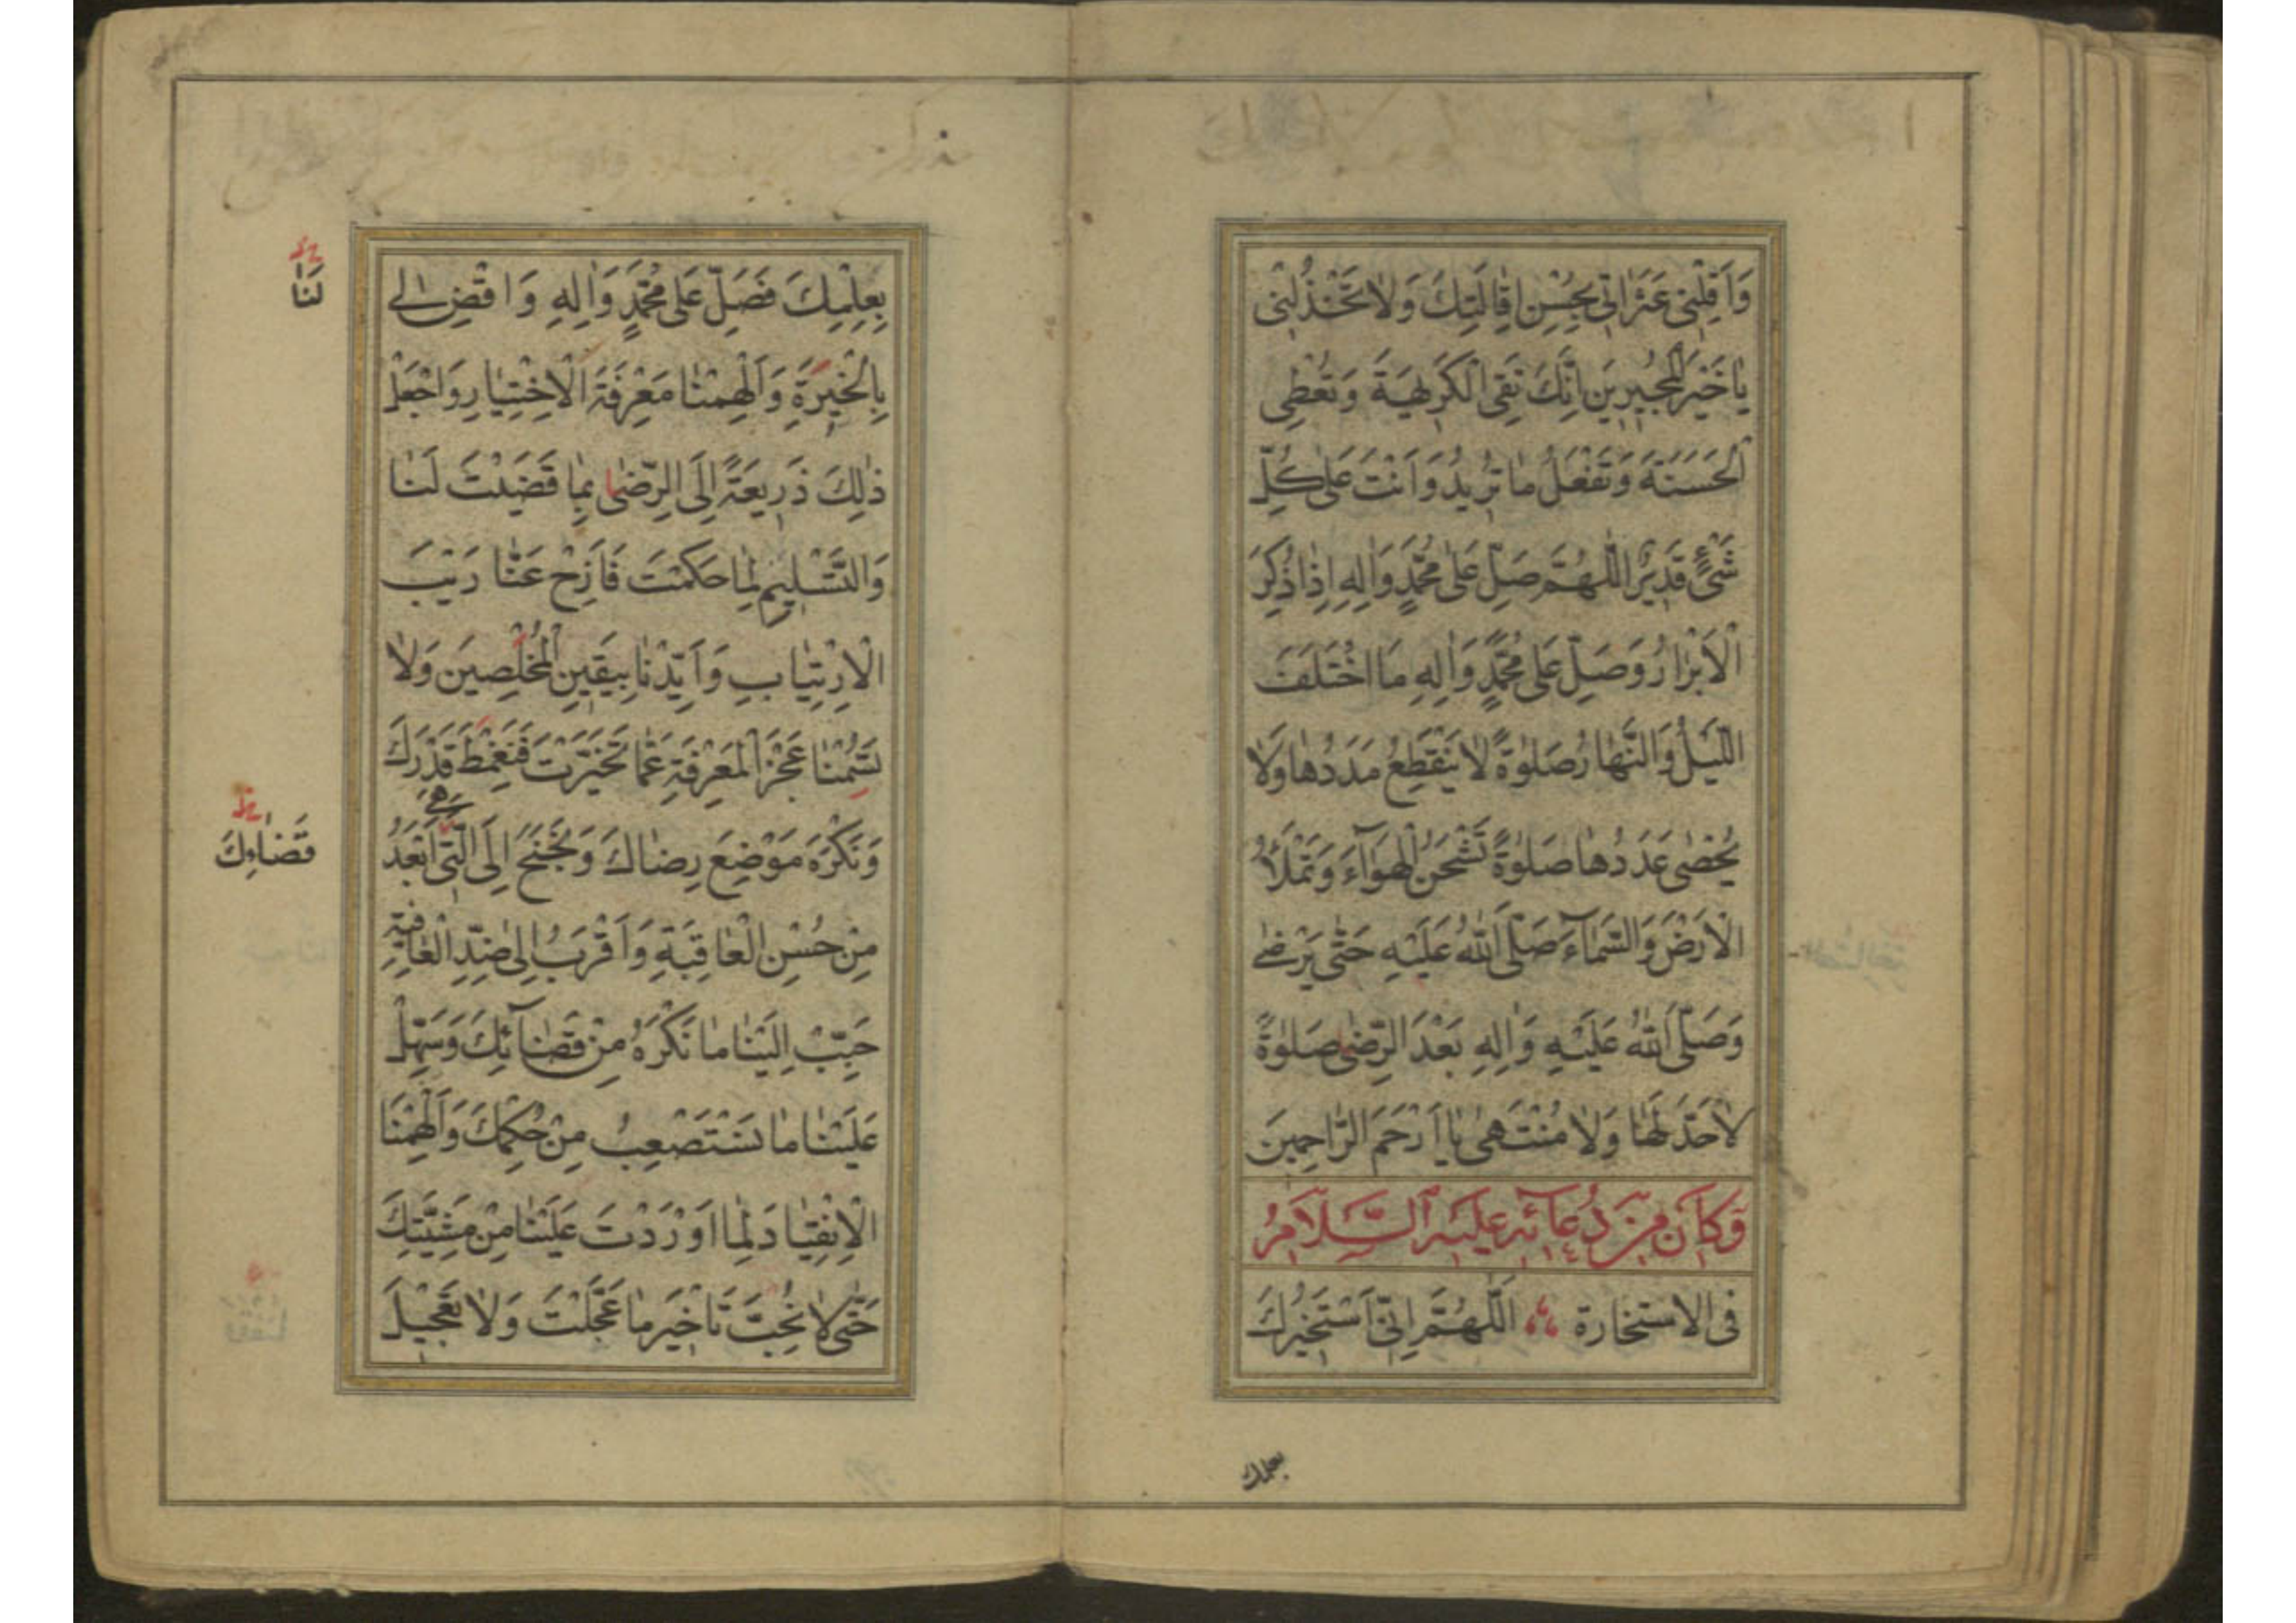 وَاَقِلْنِى عَثَرَاتِى بِحُسْنِ اِقَالَتِكَ وَلَا تَخْذُلْنِى
يَا خَيْرَ الْمُجِيرِينَ اِنَّكَ تَقِى الْكَرِيهَةَ وَتُعْطِى
الْحَسَنَةَ وَتَفْعَلُ مَا تُرِيدُ وَاَنْتَ عَلٰى كُلِّ
شَىْءٍ قَدِيرٌ اَللّٰهُمَّ صَلِّ عَلٰى مُحَمَّدٍ وَاٰلِهِ اِذَا ذُكِرَ
الْاَبْرَارُ وَصَلِّ عَلٰى مُحَمَّدٍ وَاٰلِهِ مَا اخْتَلَفَ
اللَّيْلُ وَالنَّهَارُ صَلٰوةً لَا يَنْقَطِعُ مَدَدُهَا وَلَا
يُحْصٰى عَدَدُهَا صَلٰوةً تَشْحَنُ الْهَوَآءَ وَتَمْلَأُ
الْاَرْضَ وَالسَّمَآءَ صَلَّى اللّٰهُ عَلَيْهِ حَتّٰى يَرْضٰى
وَصَلَّى اللّٰهُ عَلَيْهِ وَاٰلِهِ بَعْدَ الرِّضٰى صَلٰوةً
لَا حَدَّ لَهَا وَلَا مُنْتَهٰى يَا اَرْحَمَ الرَّاحِمِينَ
وَكَانَ مِنْ دُعَائِهِ عَلَيْهِ السَّلَامُ
فى الاستخارة اَللّٰهُمَّ اِنِّى اَسْتَخِيرُكَ
بعلمك
بِعِلْمِكَ فَصَلِّ عَلٰى مُحَمَّدٍ وَاٰلِهِ وَاقْضِ لِى
لَنَا
بِالْخِيَرَةِ وَاَلْهِمْنَا مَعْرِفَةَ الْاِخْتِيَارِ وَاجْعَلْ
ذٰلِكَ ذَرِيعَةً اِلَى الرِّضٰى بِمَا قَضَيْتَ لَنَا
وَالتَّسْلِيمِ لِمَا حَكَمْتَ فَاَزِحْ عَنَّا رَيْبَ
الْاِرْتِيَابِ وَاَيِّدْنَا بِيَقِينِ الْمُخْلِصِينَ وَلَا
تَسُمْنَا عَجْزَ الْمَعْرِفَةِ عَمَّا تَخَيَّرْتَ فَنَغْمِطَ قَدْرَكَ
وَنَكْرَهَ مَوْضِعَ رِضَاكَ وَنَجْنَحَ اِلَى الَّتِى هِىَ اَبْعَدُ
قَضَاءِكَ
مِنْ حُسْنِ الْعَاقِبَةِ وَاَقْرَبُ اِلٰى ضِدِّ الْعَافِيَةِ
حَبِّبْ اِلَيْنَا مَا نَكْرَهُ مِنْ قَضَآئِكَ وَسَهِّلْ
عَلَيْنَا مَا نَسْتَصْعِبُ مِنْ حُكْمِكَ وَاَلْهِمْنَا
الْاِنْقِيَادَ لِمَا اَوْرَدْتَ عَلَيْنَا مِنْ مَشِيَّتِكَ
حَتّٰى لَا نُحِبَّ تَاْخِيرَ مَا عَجَّلْتَ وَلَا تَعْجِيلَ